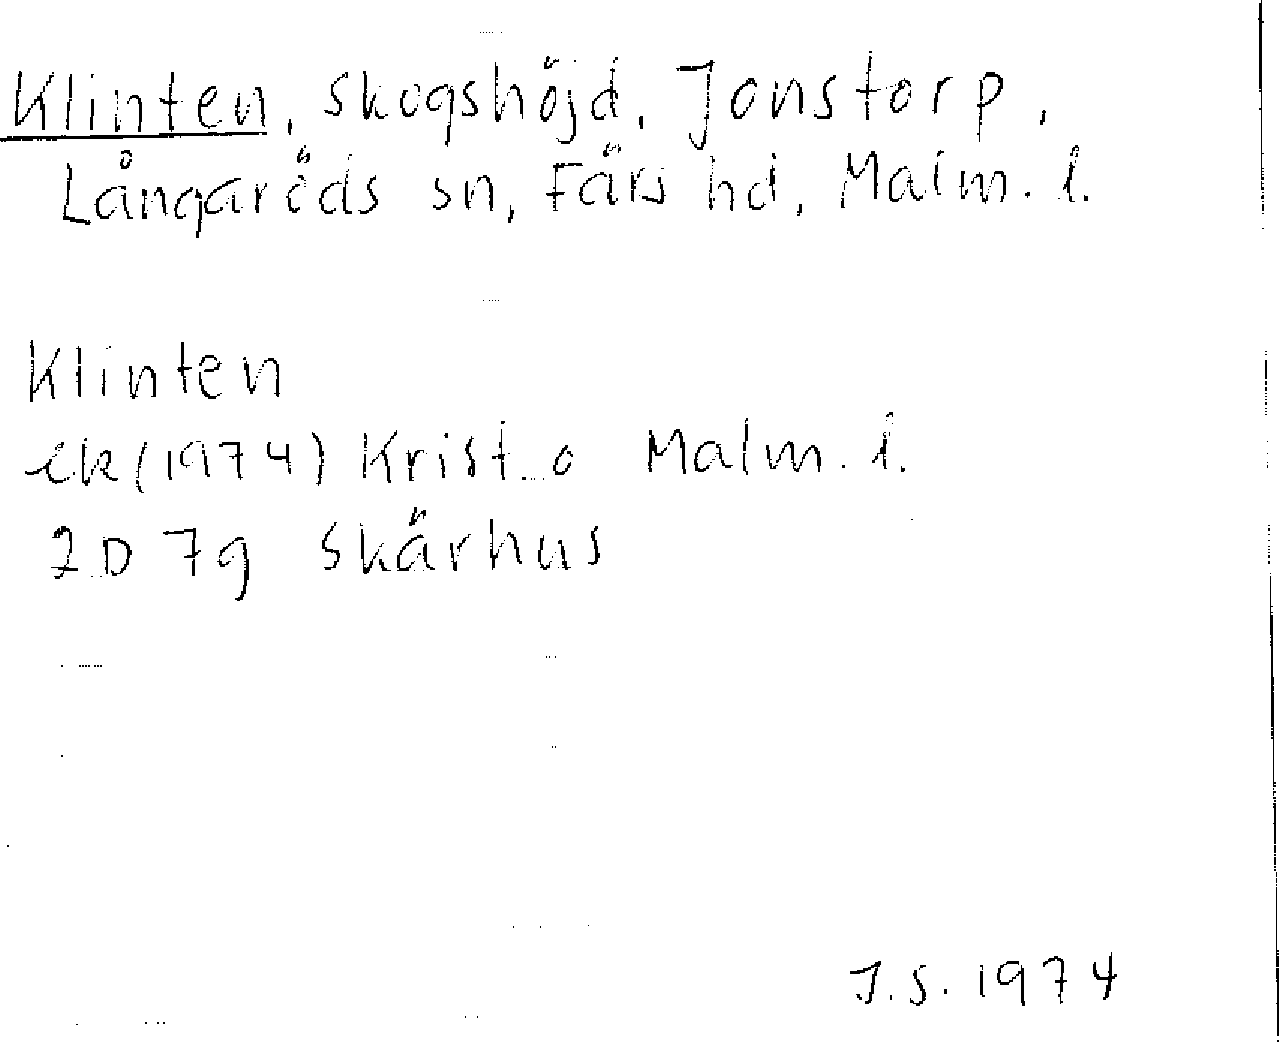 Klinten, skogshöjd, Jonstorp,
Långaröds sn, Färs hd, Malm. l.
Klinten
ek (1974) Krist o Malm. l.
2D 7g Skärhus
J.S. 1974